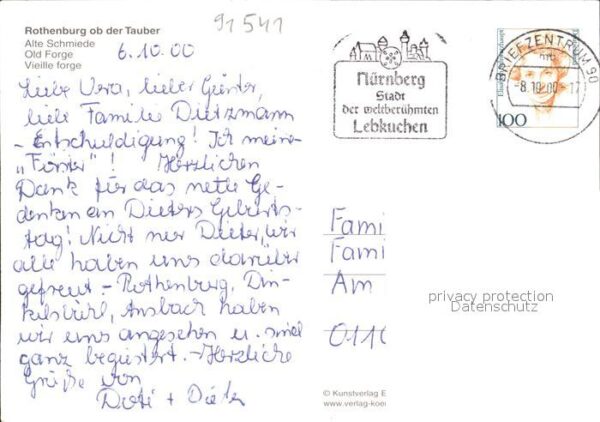 Rothenburg ob der Tauber
Alte Schmiede
Old Forge
Vieille forge
91 541
6.10.00
Liebe Vera, lieber Günter,
liebe Familie Dietzmann
- Entschuldigung! Ich meine
"Förster"! Herzlichen
Dank für das nette Ge-
denken an Dieters Geburts-
tag! Nicht nur Dieter, wir
alle haben uns darüber
gefreut - Rothenburg, Din-
kelsbühl, Ansbach haben
wir uns angesehen u. sind
ganz begeistert. - Herzliche
Grüße von
Dori + Dieter
Nürnberg
Stadt
der weltberühmten
Lebkuchen
BRIEFZENTRUM 90
-8.10.00-17
100
Fami
Fami
Am
0110
privacy protection
Datenschutz
© Kunstverlag E
www.verlag-koe